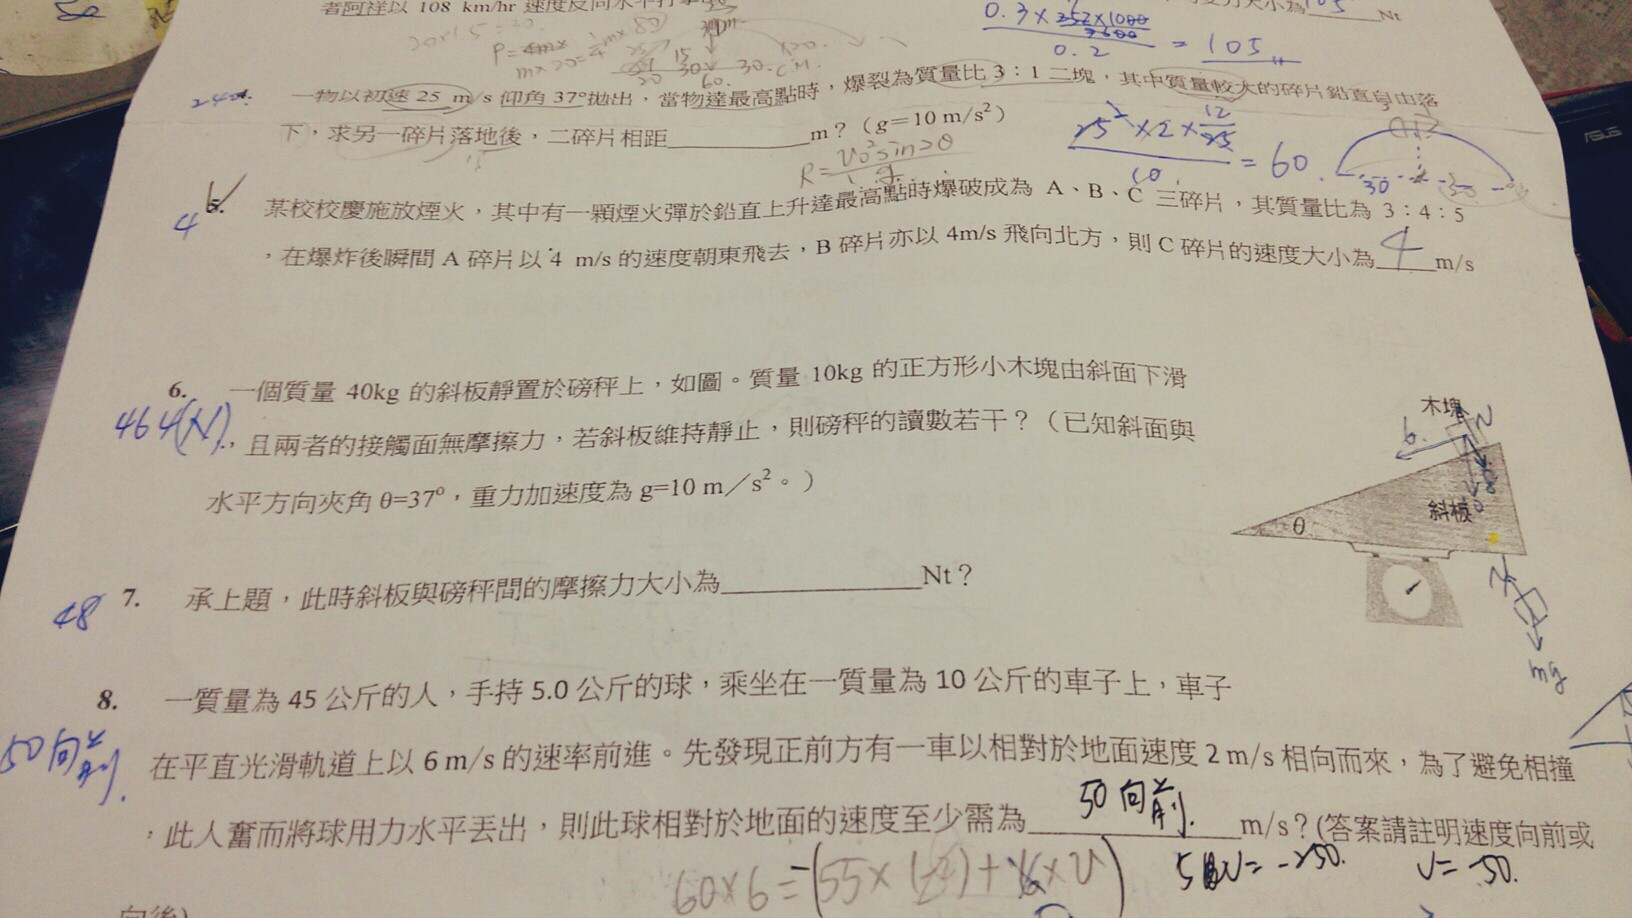 者阿祥以 108 km/hr 速度反向水平打擊
Nt
0.3×252×1000
3600
0.2
= 105
一物以初速 25 m/s 仰角 37°拋出，當物達最高點時，爆裂為質量比 3：1 二塊，其中質量較大的碎片鉛直自由落
下，求另一碎片落地後，二碎片相距__________m？（g=10 m/s²）
25²×2×12
25
10
= 60
30
R=
V₀²sin2θ
g
4
5. 某校校慶施放煙火，其中有一顆煙火彈於鉛直上升達最高點時爆破成為 A、B、C 三碎片，其質量比為 3：4：5
，在爆炸後瞬間 A 碎片以 4 m/s 的速度朝東飛去，B 碎片亦以 4m/s 飛向北方，則 C 碎片的速度大小為__4__m/s
6. 一個質量 40kg 的斜板靜置於磅秤上，如圖。質量 10kg 的正方形小木塊由斜面下滑
464(N)
，且兩者的接觸面無摩擦力，若斜板維持靜止，則磅秤的讀數若干？（已知斜面與
水平方向夾角 θ=37°，重力加速度為 g=10 m／s²。）
木塊
N
斜板
θ
mg
48
7. 承上題，此時斜板與磅秤間的摩擦力大小為__________Nt？
8. 一質量為 45 公斤的人，手持 5.0 公斤的球，乘坐在一質量為 10 公斤的車子上，車子
50向前.
在平直光滑軌道上以 6 m/s 的速率前進。先發現正前方有一車以相對於地面速度 2 m/s 相向而來，為了避免相撞
，此人奮而將球用力水平丟出，則此球相對於地面的速度至少需為__50向前.__m/s？(答案請註明速度向前或
向後)
60×6=
V= -50.